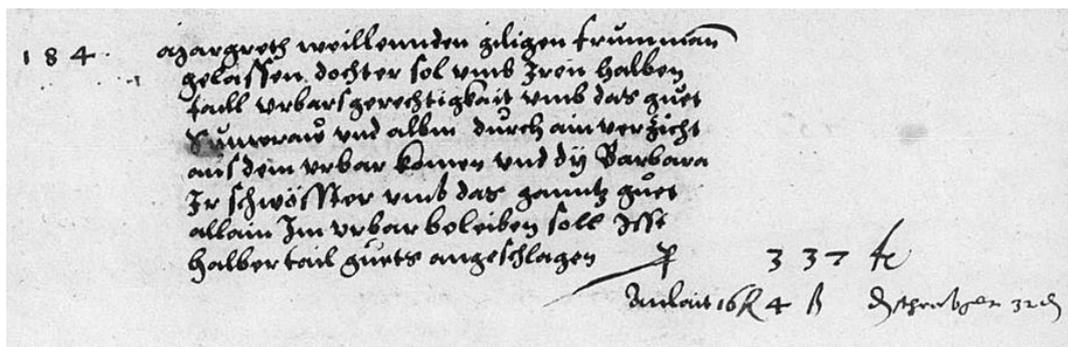 184. Margreth weillennden giligen frummann
gelassen dochter sol vmb Iren halben
taill vrbarsgerechtigkait vmb das guet
Sumerau vnd albm durch ain verzicht
aus dem vrbar komen vnd dy Barbara
Ir schwösster vmb das ganntz guet
allain Im vrbar beleiben soll Isst
halber tail guets angeschlagen 337
Anlait 16 4 ß 32